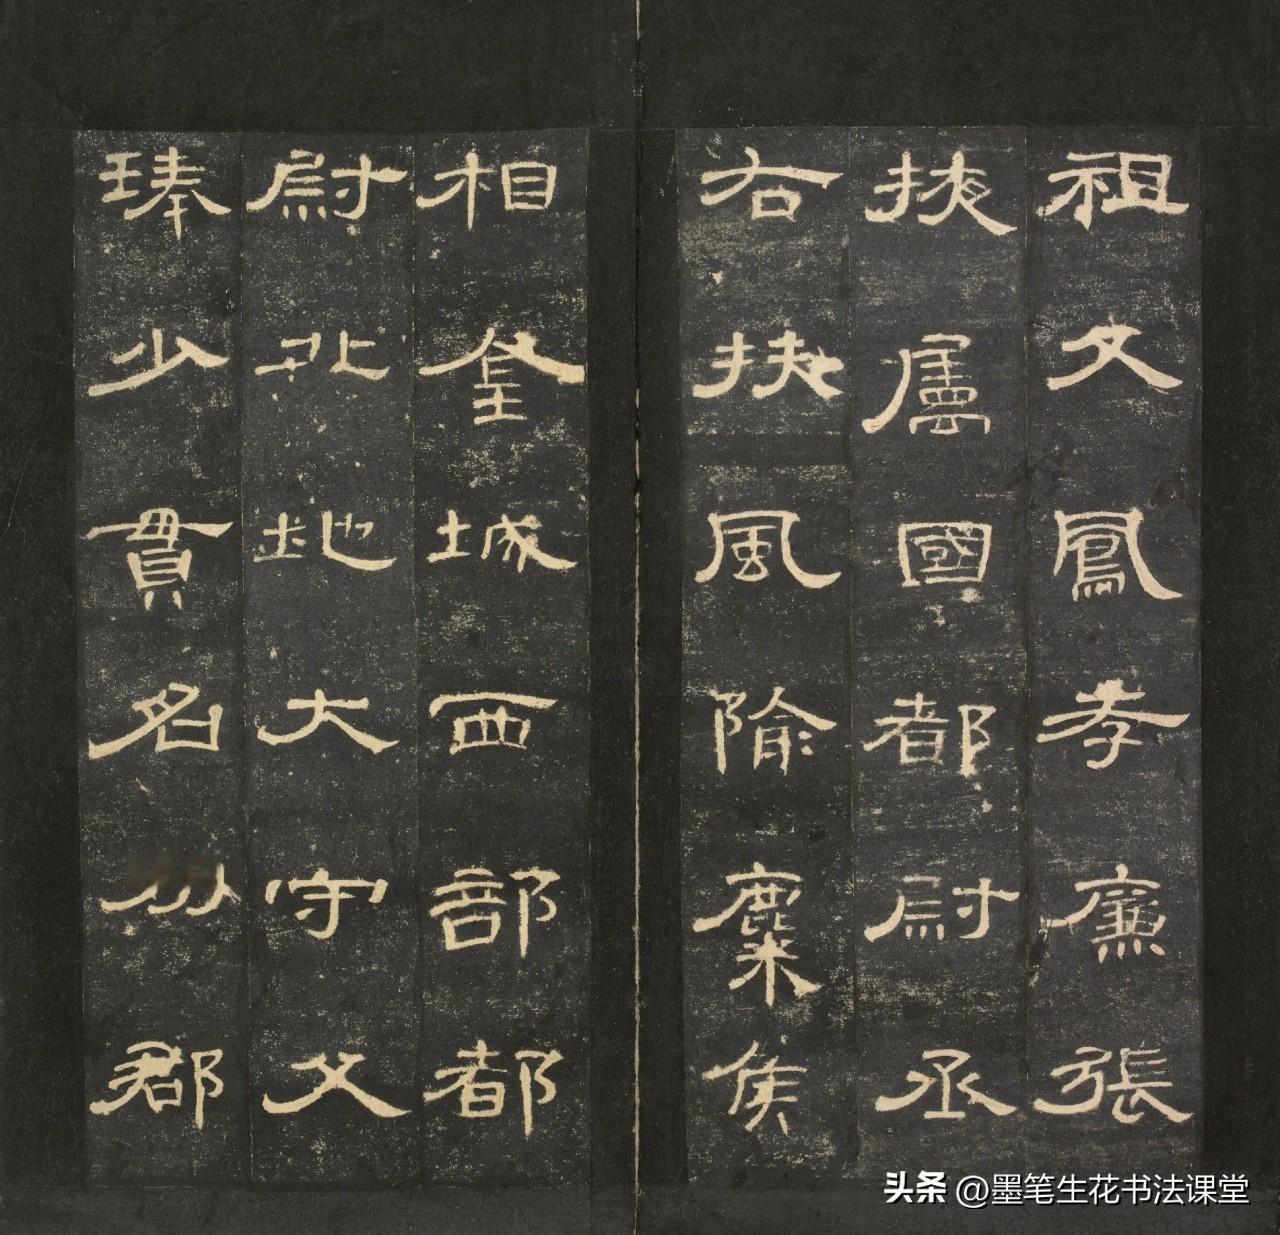 祖父鳳孝廉張
掖屬國都尉丞
右扶風隃麋侯
相金城西部都
尉北地大守父
琫少貫名州郡
头条 @墨笔生花书法课堂